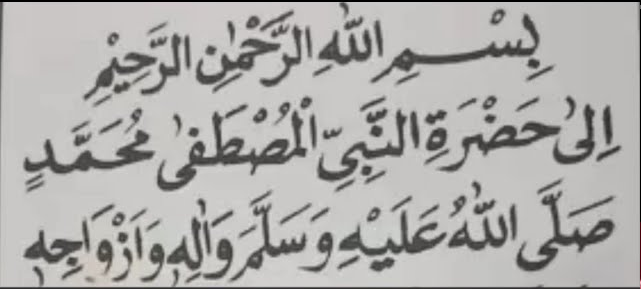 بِسْمِ اللّٰهِ الرَّحْمٰنِ الرَّحِيْمِ
اِلىٰ حَضْرَةِ النَّبِيِّ الْمُصْطَفىٰ مُحَمَّدٍ
صَلَّى اللّٰهُ عَلَيْهِ وَسَلَّمَ وَاٰلِهٖ وَاَزْوَاجِهٖ